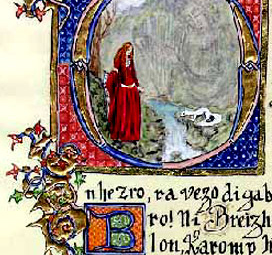 n he zro, ra vezo digab
Bro! Ni Breizh
lon, Karomp h